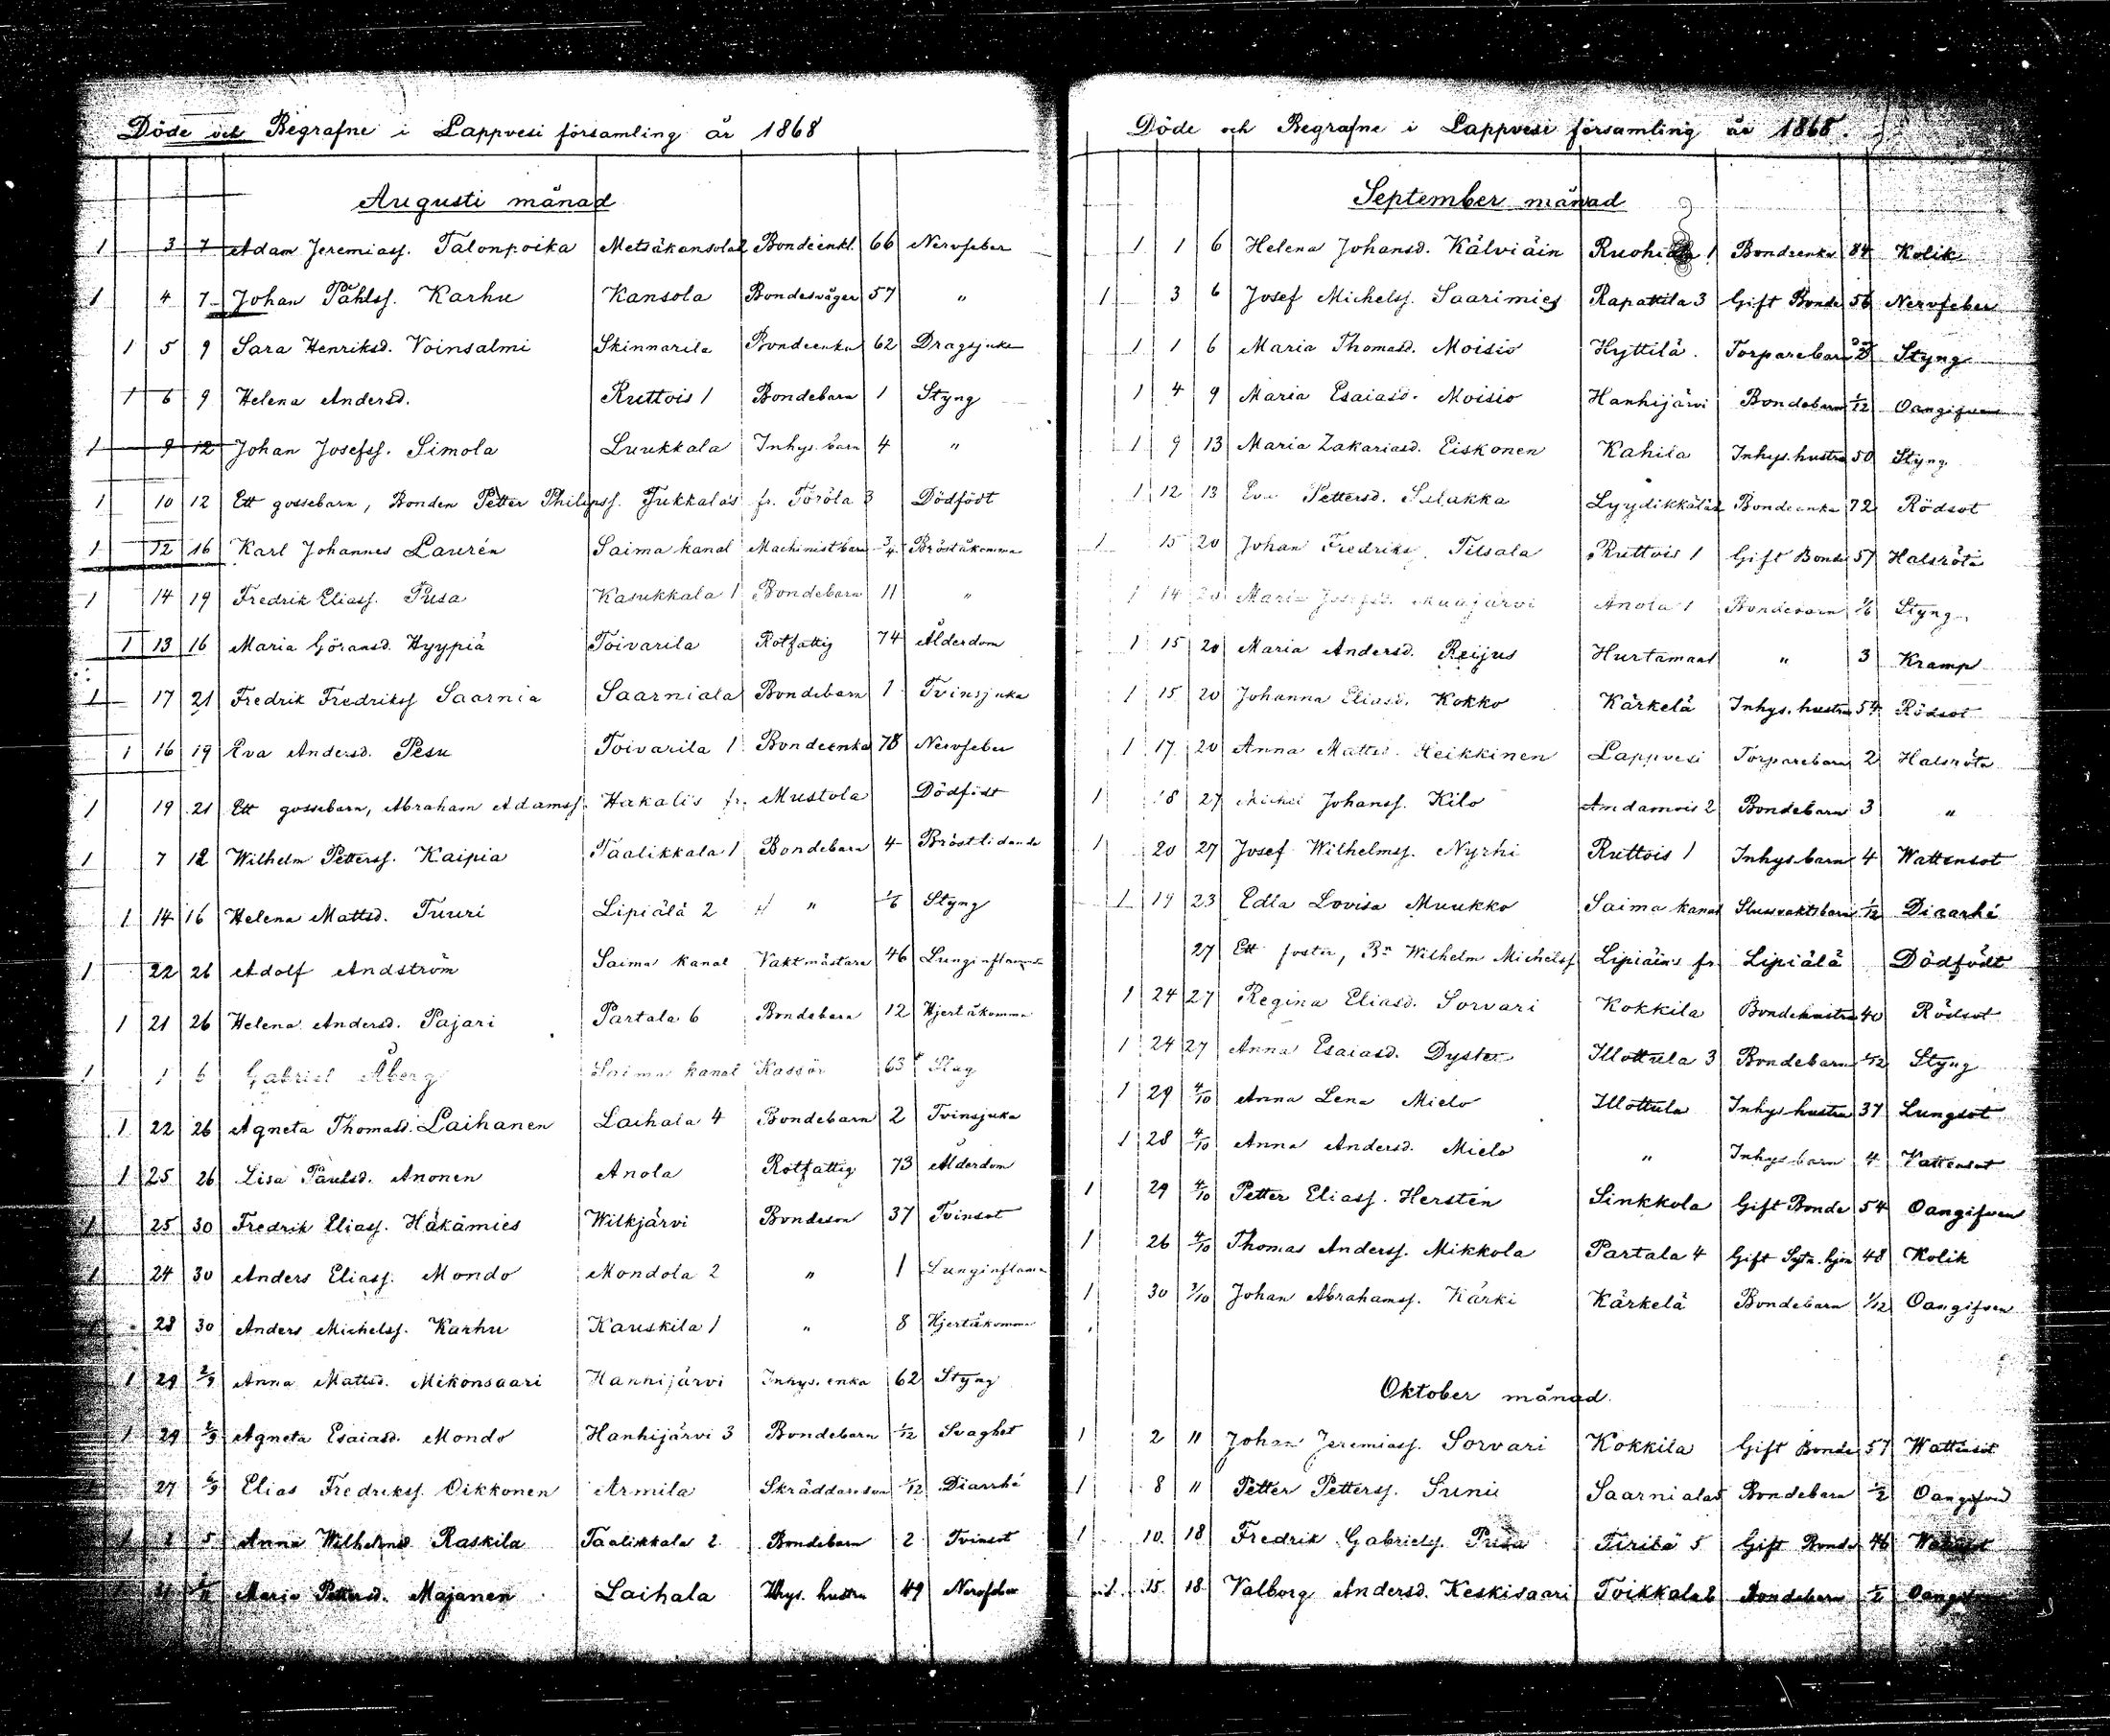 Döde och Begrafne i Lappvesi församling år 1868
Augusti månad
1 3 7 Adam Jeremiass. Talonpoika Metsäkansola 2 Bondeenkl. 66 Nervfeber
1 4 7 Johan Påhlss. Karhu Kansola Bondesvåger 57 "
1 5 9 Sara Henriksd. Voinsalmi Skinnarila Bondeenka 62 Dragsjuka
1 6 9 Helena Andersd. Ruttois 1 Bondebarn 1 Styng
1 9 12 Johan Josefss. Simola Luukkala Inhys. barn 4 "
1 10 12 Ett gossebarn, Bonden Petter Philipss. Jukkalas fr. Törölä 3 Dödfödt
1 12 16 Karl Johannes Laurén Saima kanal Machinistbarn 3/4 Bröståkomma
1 14 19 Fredrik Eliass. Pusa Kasukkala 1 Bondebarn 11 "
1 13 16 Maria Göransd. Hyypiä Toivarila Rotfattig 74 Ålderdom
1 17 21 Fredrik Fredrikss Saarnia Saarniala Bondebarn 1 Tvinsjuka
1 16 19 Eva Andersd. Pesu Toivarila 1 Bondeenka 78 Nervfeber
1 19 21 Ett gossebarn, Abraham Adamss. Hakalis fr. Mustola Dödfödt
1 7 12 Wilhelm Petterss. Kaipia Taalikkala 1 Bondebarn 4 Bröstlidande
1 14 16 Helena Mattsd. Tuuri Lipiälä 2 " " 1/6 Styng
1 22 26 Adolf Andström Saima kanal Vaktmästare 46 Lunginflamm
1 21 26 Helena Andersd. Pajari Partala 6 Bondebarn 12 Hjertåkomma
1 1 6 Gabriel Åberg Saima kanal Kassör 63 Slag
1 22 26 Agneta Thomasd. Laihanen Laihala 4 Bondebarn 2 Tvinsjuka
1 25 26 Lisa Paulsd. Anonen Anola Rotfattig 73 Ålderdom
1 25 30 Fredrik Eliass. Häkämies Wilkjärvi Bondeson 37 Tvinsot
1 24 30 Anders Eliass. Mondo Mondola 2 " 1 Lunginflamm
28 30 Anders Michelss. Karhu Kauskila 1 " 8 Hjertåkomma
1 29 2/9 Anna Mattsd. Mikonsaari Hanhijärvi Inhys. enka 62 Styng
1 29 2/9 Agneta Esaiasd. Mondo Hanhijärvi 3 Bondebarn 1/12 Svaghet
27 Elias Fredrikss. Oikkonen Armila Skräddareson 1/12 Diarrhé
1 5 Anna Wilhelmsd. Raskila Taalikkala 2 Bondebarn 2 Tvinsot
Maria Pettersd. Majanen Laihala Inhys. hustru 49 Nervfeber
Döde och Begrafne i Lappvesi församling år 1868.
September månad
1 1 6 Helena Johansd. Kälviäin 1 Bondeenka 84 Kolik
1 3 6 Josef Michelss. Saarimies Rapattila 3 Gift Bonde 56 Nervfeber
1 1 6 Maria Thomasd. Moisio Hyttilä. Torparebarn Styng
1 4 9 Maria Esaiasd. Moisio Hanhijärvi Bondebarn 1/12 Oangifven
1 9 13 Maria Zakariasd. Eiskonen Kahila Inhys. hustru 50 Styng
1 12 13 Eva Pettersd. Salakka Lyydikkälä 2 Bondeenka 72 Rödsot
1 15 20 Johan Fredrikss. Tilsala Ruttois 1 Gift Bonde 57 Halsröta
1 14 20 Maria Josefsd. Muujärvi Anola 1 Bondebarn 1/6 Styng
1 15 20 Maria Andersd. Reijus Hurtamaal " 3 Kramp
1 15 20 Johanna Eliasd. Kokko Kärkelä Inhys. hustru 54 Rödsot
1 17 20 Anna Mattsd. Heikkinen Lappvesi Torparebarn 2 Halsröta
1 18 27 Michel Johanss. Kilo Andamois 2 Bondebarn 3 "
1 20 27 Josef Wilhelmss. Nyrhi Ruttois 1 Inhys. barn 4 Wattensot
1 19 23 Edla Lovisa Muukko Saima kanal Slussvaktsbarn 1/12 Diarrhé
27 Ett foster, Bn Wilhelm Michelss Lipiäins fr. Lipiälä Dödfödt
1 24 27 Regina Eliasd. Sorvari Kokkila Bondehustru 40 Rödsot
1 24 27 Anna Esaiasd. Dyster Ilottula 3 Bondebarn 1/12 Styng
1 29 4/10 Anna Lena Mielo Ilottula Inhys hustru 37 Lungsot
1 28 4/10 Anna Andersd. Mielo " Inhys barn 4 Vattensot
1 29 4/10 Petter Eliass. Herstén Sinkkola Gift Bonde 54 Oangifven
1 26 4/10 Thomas Anderss. Mikkola Partala 4 Gift Sytn. hjon 48 Kolik
1 30 Johan Abrahamss. Kärki Kärkelä Bondebarn 1/12 Oangifven
Oktober månad.
1 2 11 Johan Jeremiass. Sorvari Kokkila Gift Bonde 57 Wattusot
1 8 11 Petter Petterss. Suni Saarniala 5 Bondebarn 1/2 Oangifven
1 10 18 Fredrik Gabrielss. Pusa Tirilä 5 Gift Bonde 46
1 15 18 Valborg Andersd. Keskisaari Toikkala 2 Bondebarn 1/2